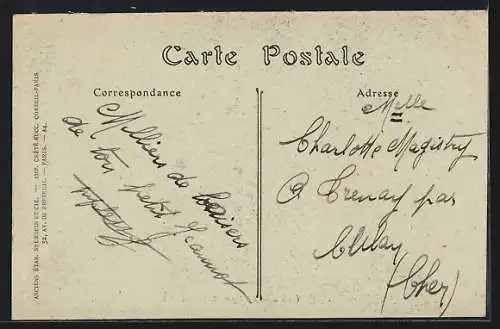 Carte Postale
Correspondance
Adresse
Milliers de baisers
de ton petit Jeannot
Melle
Charlotte Magistry
à Trenay par
(Cher)
ANCIENS ÉTAB. NEURDEIN ET CIE. — IMP. CRÉTÉ SUCC. CORBEIL-PARIS
52, AV. DE BRETEUIL. — PARIS. —